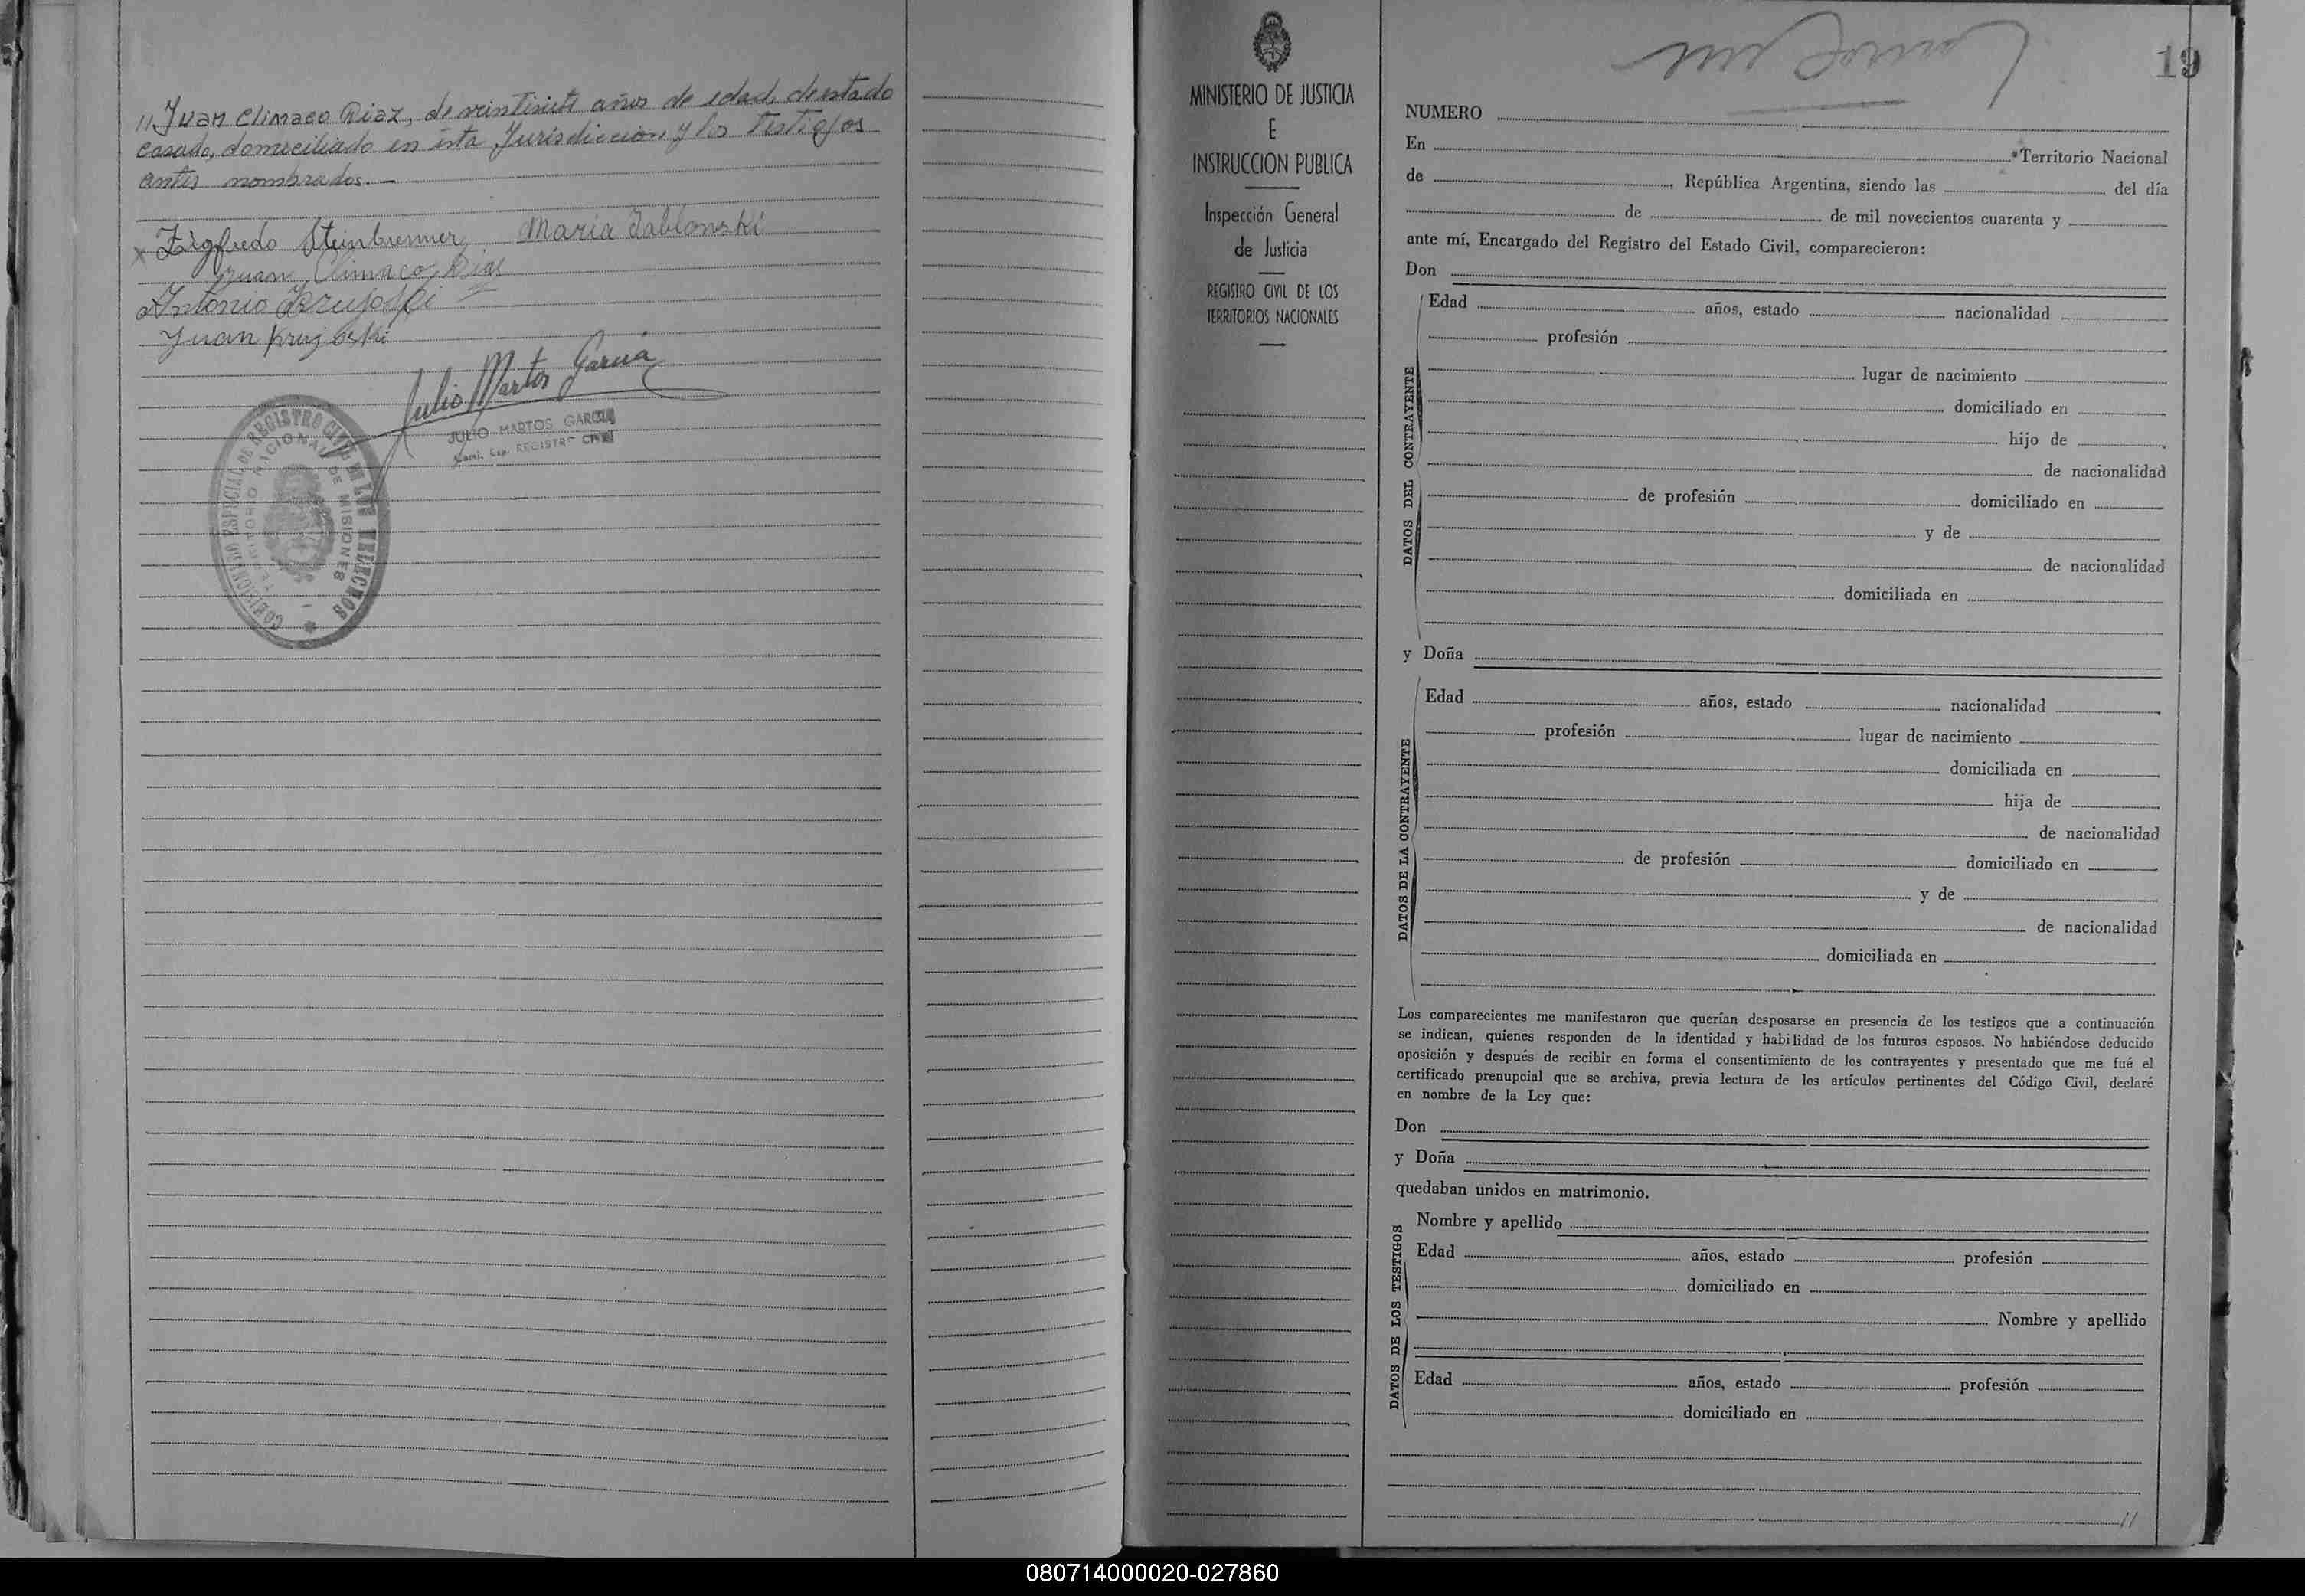 // Juan Climaco Diaz, de veintisiete años de edad, de estado
casado, domiciliado en ésta Jurisdiccion y los testigos
antes nombrados.—
x Zigfredo Steinbrenner María Jablonski
Juan Climaco Dias
Antonio
Juan
Julio Martos Garcia
JULIO MARTOS GARCIA
REGISTRO CIVIL
COMISIONADO ESPECIAL DE REGISTRO CIVIL DE LOS TERRITORIOS
NACIONAL DE MISIONES
MINISTERIO DE JUSTICIA
E
INSTRUCCION PUBLICA
Inspección General
de Justicia
REGISTRO CIVIL DE LOS
TERRITORIOS NACIONALES
19
NUMERO
En Territorio Nacional
de , República Argentina, siendo las del día
de de mil novecientos cuarenta y
ante mí, Encargado del Registro del Estado Civil, comparecieron:
Don
DATOS DEL CONTRAYENTE
Edad años, estado nacionalidad
profesión
lugar de nacimiento
domiciliado en
hijo de
de nacionalidad
de profesión domiciliado en
y de
de nacionalidad
domiciliada en
y Doña
DATOS DE LA CONTRAYENTE
Edad años, estado nacionalidad
profesión lugar de nacimiento
domiciliada en
hija de
de nacionalidad
de profesión domiciliado en
y de
de nacionalidad
domiciliada en
Los comparecientes me manifestaron que querían desposarse en presencia de los testigos que a continuación
se indican, quienes responden de la identidad y habilidad de los futuros esposos. No habiéndose deducido
oposición y después de recibir en forma el consentimiento de los contrayentes y presentado que me fué el
certificado prenupcial que se archiva, previa lectura de los artículos pertinentes del Código Civil, declaré
en nombre de la Ley que:
Don
y Doña
quedaban unidos en matrimonio.
DATOS DE LOS TESTIGOS
Nombre y apellido
Edad años, estado profesión
domiciliado en
Nombre y apellido
Edad años, estado profesión
domiciliado en
//
080714000020-027860